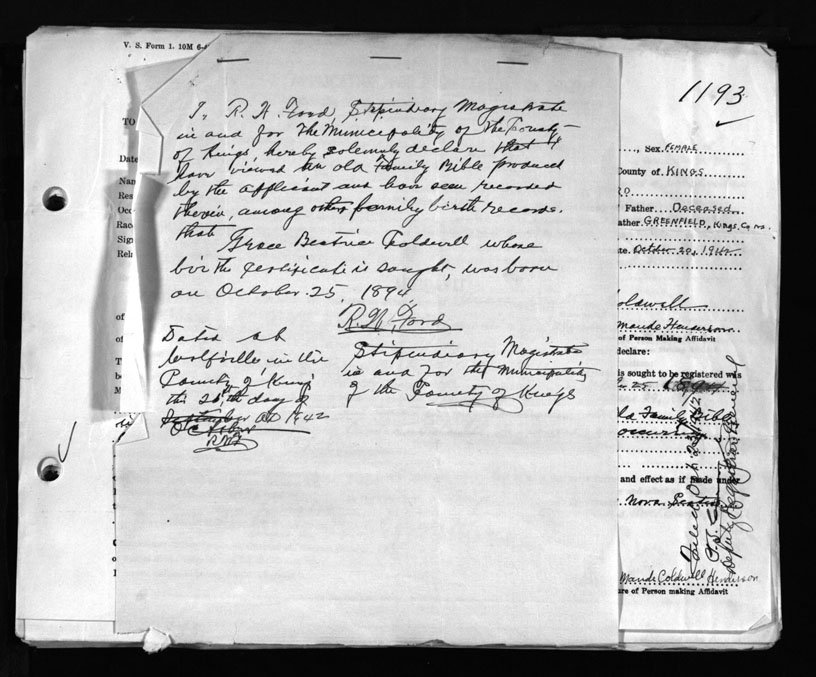 V. S. Form 1. 10M 6-4
1193
I, R. H. Ford, Stipendiary Magistrate
in and for the Municipality of the County
of Kings, hereby solemnly declare that I
have viewed an old Family Bible produced
by the applicant and have seen recorded
therein, among other family birth records.
that Grace Beatrice Coldwell whose
birth certificate is sought, was born
on October 25, 1894
R. H. Ford
Stipendiary Magistrate
in and for the Municipality
of the County of Kings
Dated at
Wolfville in the
County of Kings
this 26th day of
September AD 1942
October
TO
Date
Nam
Res
Occ
Race
Sign
Rela
of
of
T
be
M
, Sex FEMALE
County of KINGS
RD
Father Deceased
ather GREENFIELD, Kings Co NS.
te October 20, 1942
oldwell
maude Henderson
of Person Making Affidavit
declare:
is sought to be registered was
25 1894
ld Family Bible
and effect as if made under
Nova Scotia
Maude Coldwell Henderson
ure of Person making Affidavit
Deputy Registrar General